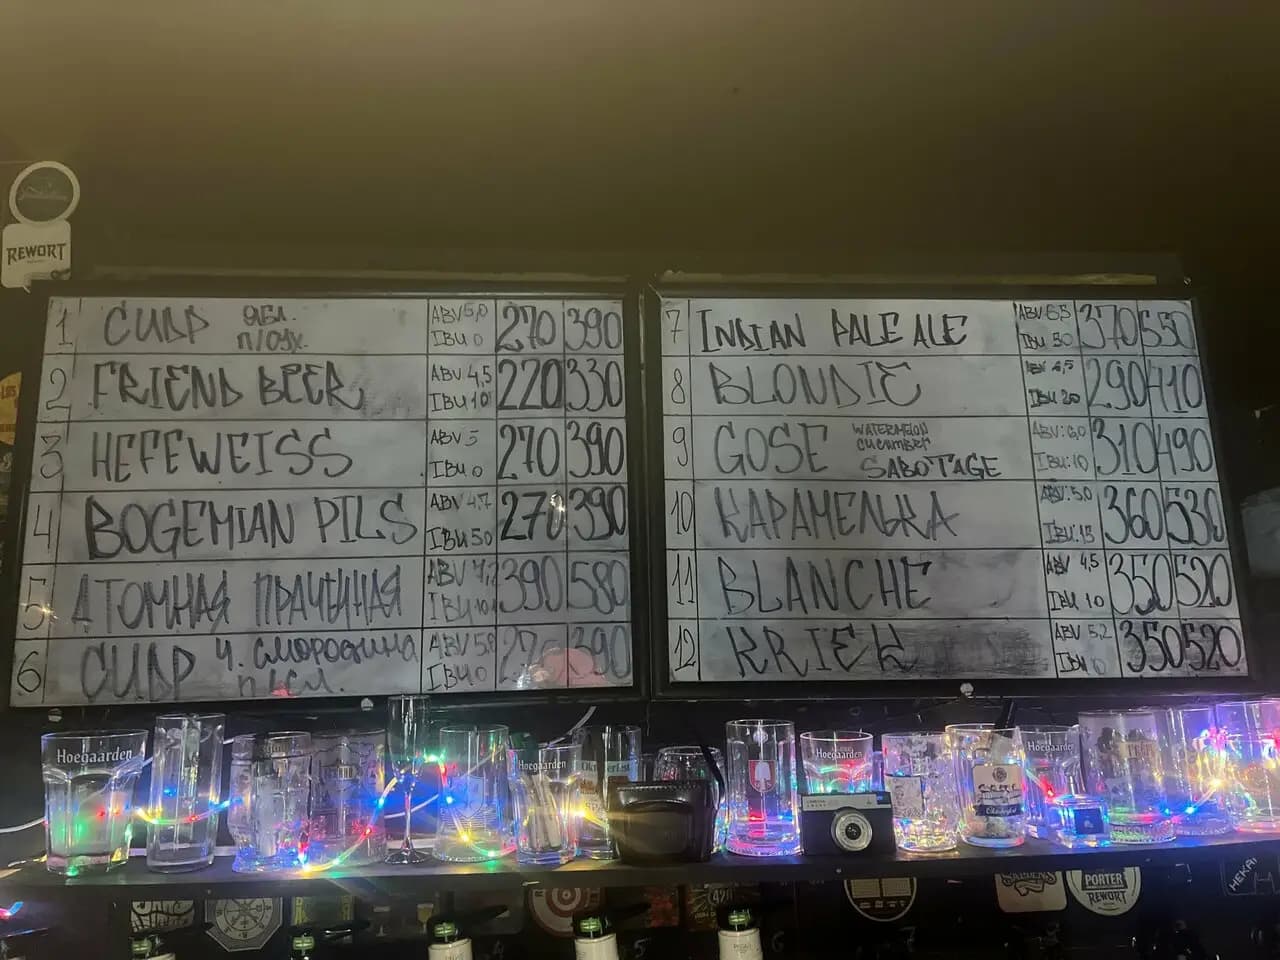 REWORT
1 СИДР ЯБЛ. П/СУХ. ABV 5,0 IBU 0 270 390
2 FRIEND BEER ABV 4,5 IBU 10 220 330
3 HEFEWEISS ABV 5 IBU 0 270 390
4 BOGEMIAN PILS ABV 4.7 IBU 50 270 390
5 АТОМНАЯ ПРАЧЕЧНАЯ ABV IBU 10 390 580
6 СИДР Ч. СМОРОДИНА П/СЛ. ABV IBU 0 390
7 INDIAN PALE ALE ABV 6.5 IBU 50 370 550
8 BLONDIE IBU 20 290 410
9 GOSE WATERMELON CUCUMBER SABOTAGE ABV: 6,0 IBU: 10 310 490
10 КАРАМЕЛЬКА ABV: 5.0 IBU: 15 360 530
11 BLANCHE ABV 4,5 IBU 10 350 520
12 KRIEK ABV 5,2 350 520
Hoegaarden
Hoegaarden
Hoegaarden
Hoegaarden
PORTER
REWORT